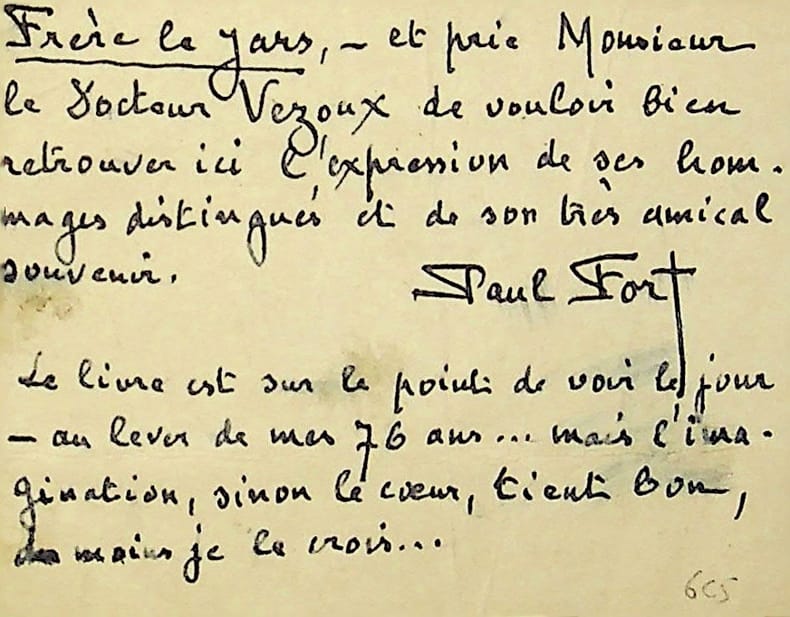 Frère le Jars, – et prie Monsieur
le Docteur Vezoux de vouloir bien
retrouver ici l'expression de ses hom-
mages distingués et de son très amical
souvenir.
Paul Fort
Le livre est sur le point de voir le jour
– au lever de mes 76 ans... mais l'ima-
gination, sinon le cœur, tient bon,
du moins je le crois...
6C5